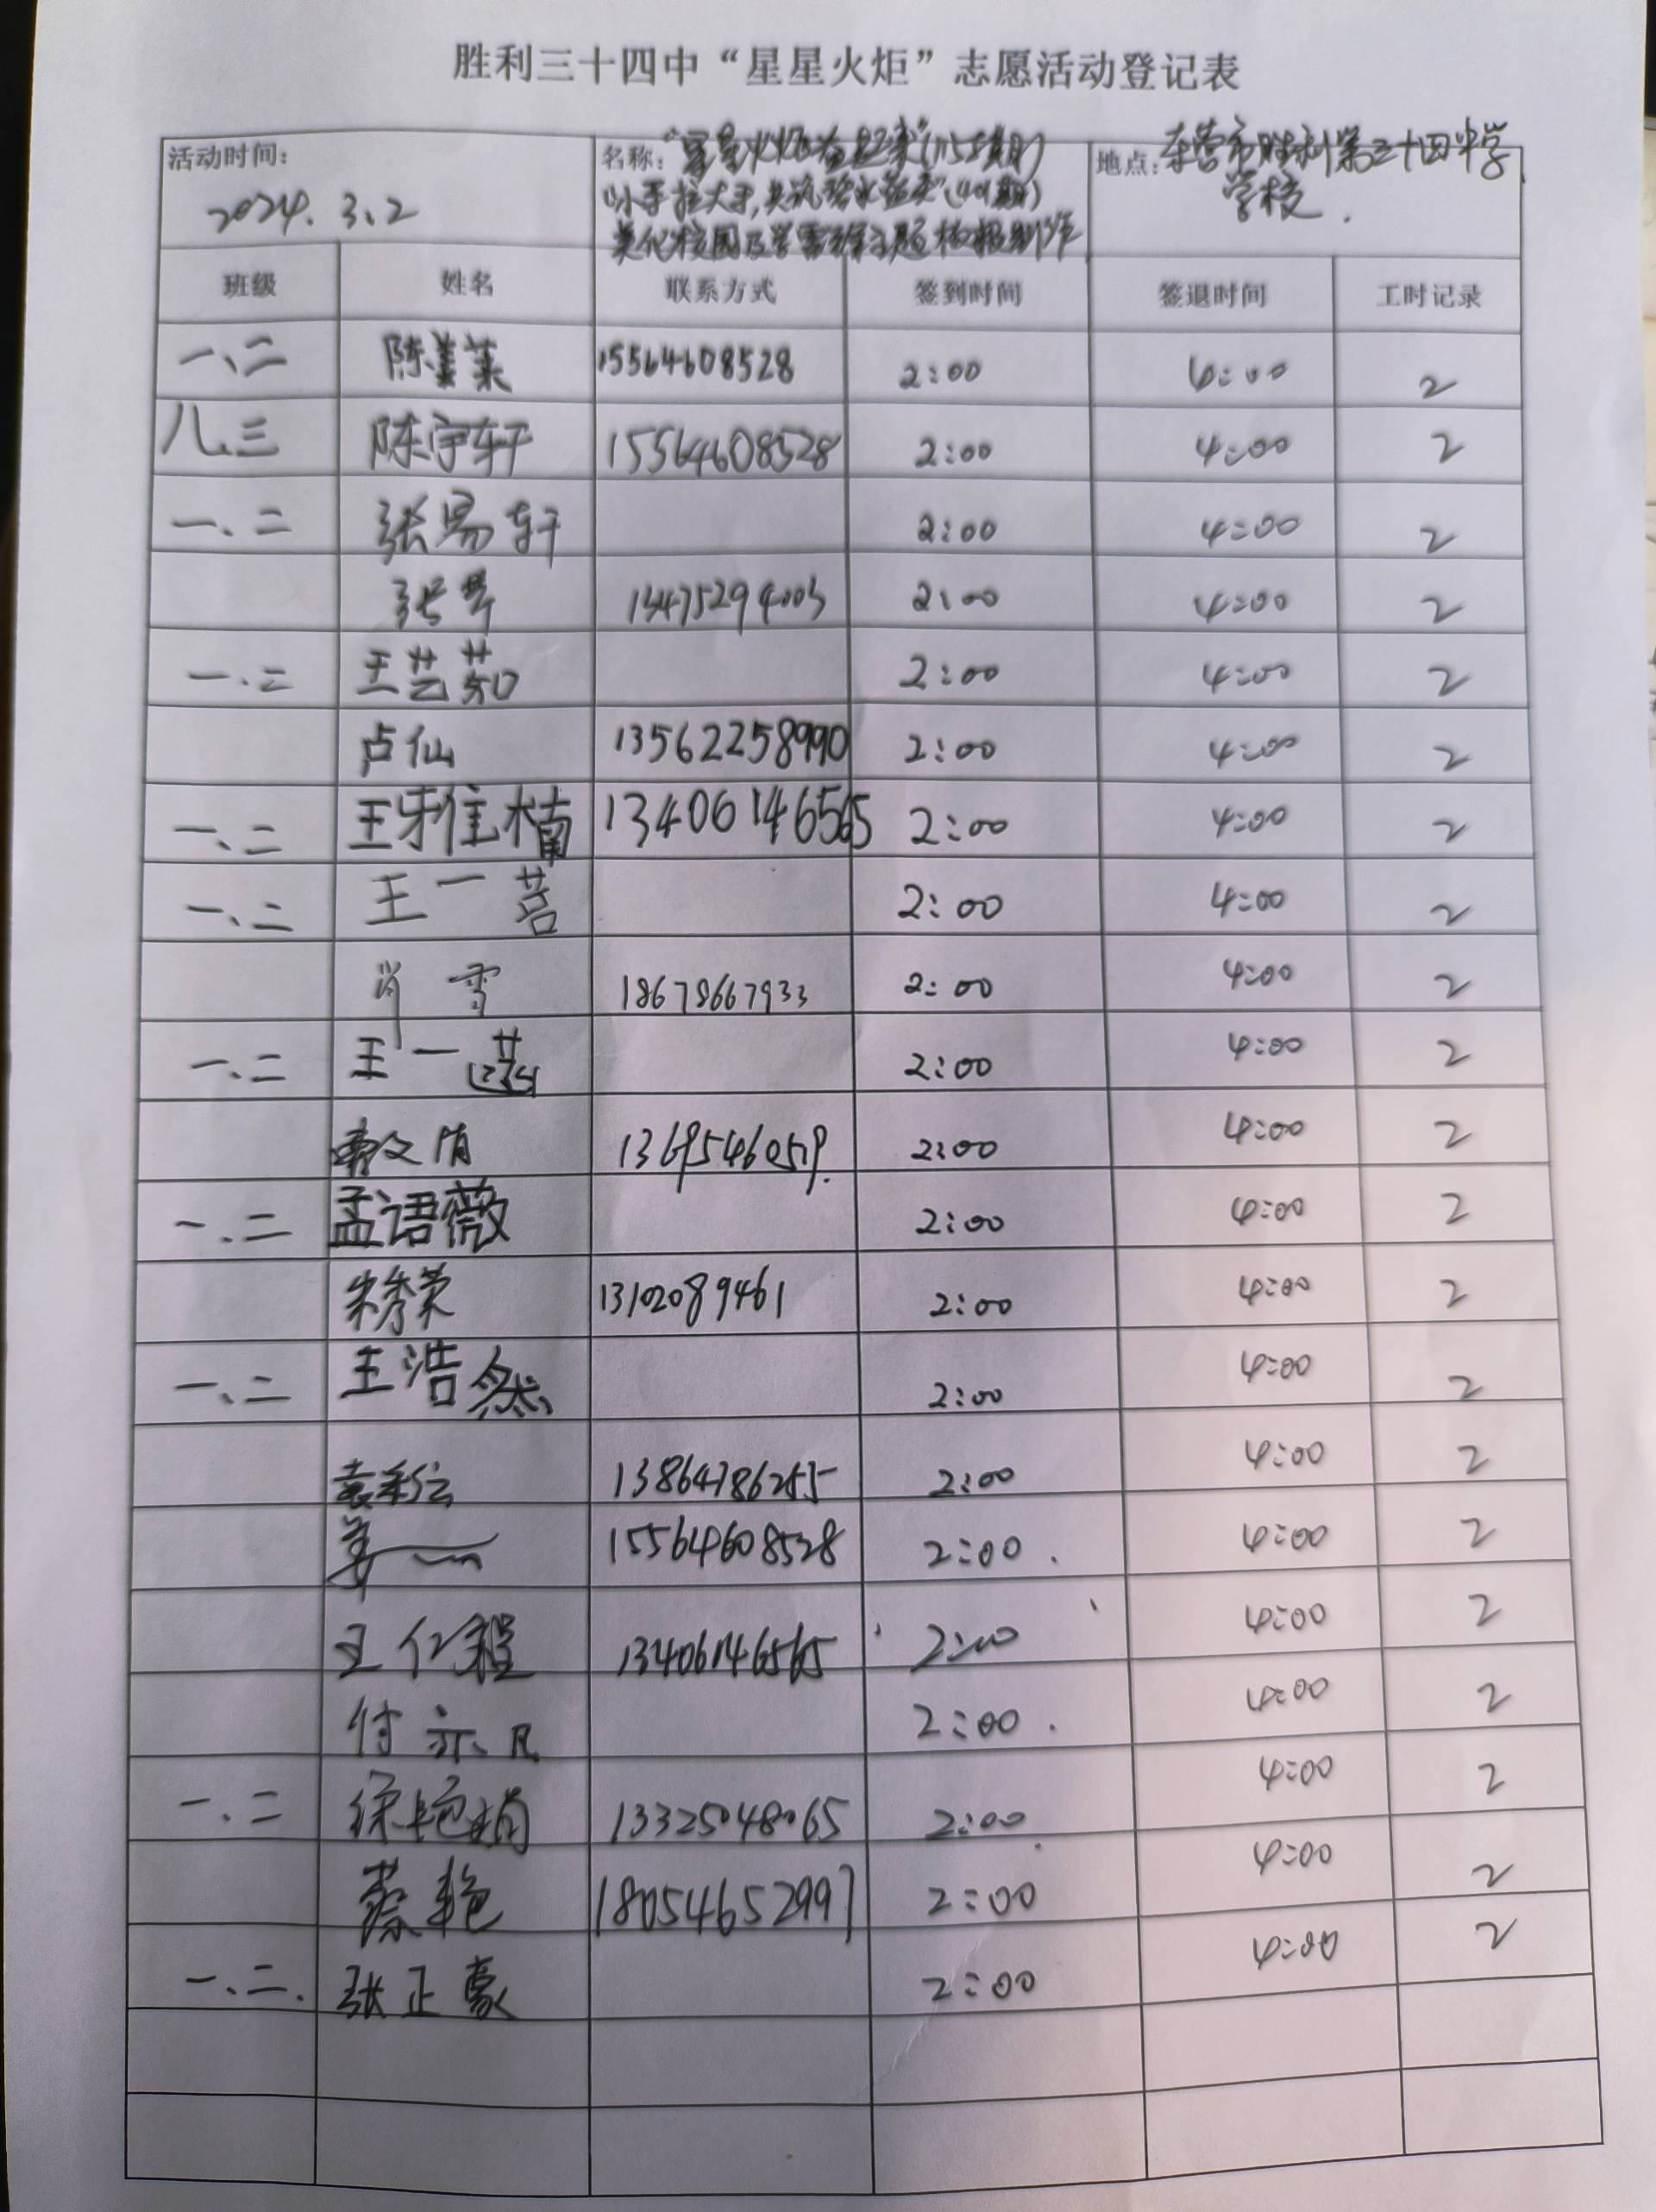 胜利三十四中“星星火炬”志愿活动登记表
活动时间: 名称: 地点: 东营市胜利第三十四中学
2024. 3.2 学校.
班级 姓名 联系方式 签到时间 签退时间 工时记录
一、二 陈姜莱 15564608528 2:00 4:00 2
八.三 陈宇轩 15564608528 2:00 4:00 2
一、二 张易轩 2:00 4:00 2
张琴 13475294003 2:00 4:00 2
一.二 王艺茹 2:00 4:00 2
卢仙 13562258990 2:00 4:00 2
一、二 王 楠 13406146565 2:00 4:00 2
一、二 王一茗 2:00 4:00 2
肖雪 18678667933 2:00 4:00 2
一.二 王一 2:00 4:00 2
2:00 4:00 2
一.二 孟语薇 2:00 4:00 2
宋秀荣 13102089461 2:00 4:00 2
一、二 王浩然 2:00 4:00 2
2:00 4:00 2
姜 15564608528 2:00 . 4:00 2
王仁程 13406146565 2:00 4:00 2
付亦凡 2:00 . 4:00 2
一.二 徐艳娟 13325048065 2:00 4:00 2
蔡艳 18054652997 2:00 4:00 2
一.二. 张正豪 2:00 4:00 2